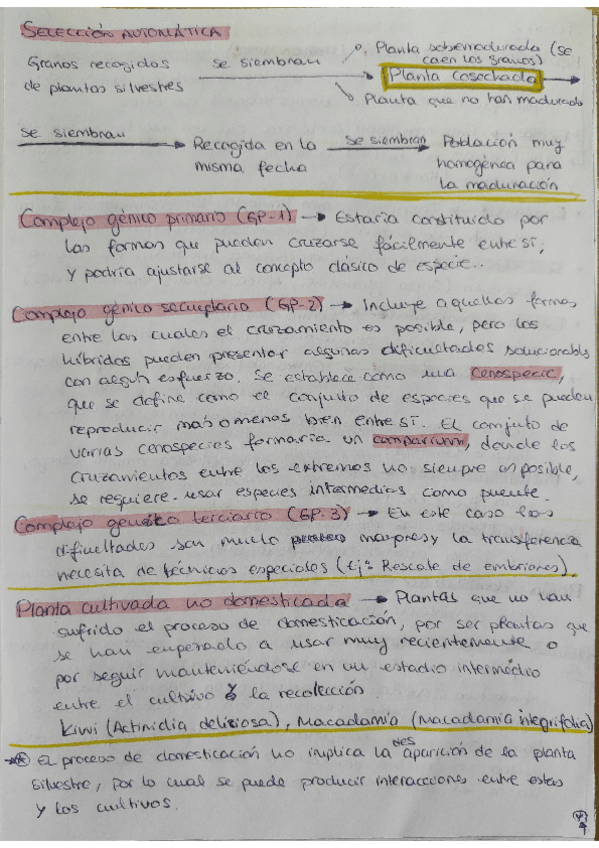 SELECCIÓN AUTOMÁTICA
Granos recogidos de plantas silvestres
se siembran
Planta sobremadurada (se caen los granos)
Planta cosechada
Planta que no han madurado
se siembran
Recogida en la misma fecha
se siembran
Población muy homogénea para la maduración
Complejo génico primario (GP-1) → Estaría constituido por
las formas que puedan cruzarse fácilmente entre sí,
y podría ajustarse al concepto clásico de especie..
Complejo génico secundario (GP-2) → Incluye aquellas formas
entre las cuales el cruzamiento es posible, pero los
híbridos pueden presentar algunas dificultades solucionables
con algún esfuerzo. Se establece como una cenospecie,
que se define como el conjunto de especies que se pueden
reproducir más o menos bien entre sí. El conjunto de
varias cenospecies formaría un comparium, donde los
cruzamientos entre los extremos no siempre es posible,
se requiere usar especies intermedias como puente.
Complejo genético terciario (GP-3) → En este caso las
dificultades son mucho mayores y la transferencia
necesita de técnicas especiales (Ej: Rescate de embriones).
Planta cultivada no domesticada → Plantas que no han
sufrido el proceso de domesticación, por ser plantas que
se han empezado a usar muy recientemente o
por seguir manteniéndose en un estadio intermedio
entre el cultivo y la recolección.
Kiwi (Actinidia deliziosa), Macadamia (Macadamia integrifolia)
* El proceso de domesticación no implica la desaparición de la planta
silvestre, por lo cual se puede producir interacciones entre estas
y los cultivos.